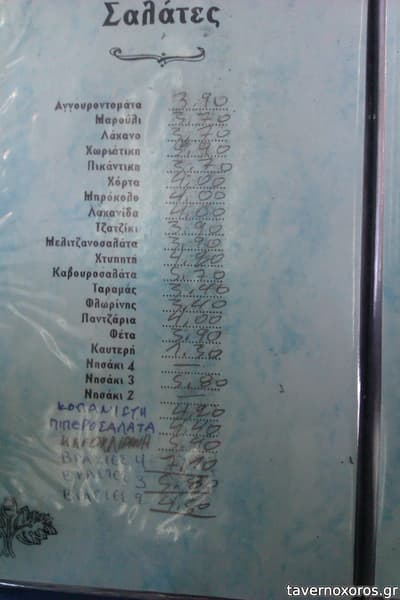 Σαλάτες
Αγγουροντομάτα 3.90
Μαρούλι 3.70
Λάχανο 3.70
Χωριάτικη
Πικάντικη 3.70
Χόρτα 4.00
Μπρόκολο 4.00
Λαχανίδα 4.00
Τζατζίκι 3.90
Μελιτζανοσαλάτα 3.90
Χτυπητή
Καβουροσαλάτα 3.70
Ταραμάς 3.40
Φλωρίνης 3.40
Παντζάρια 4.00
Φέτα 3.90
Καυτερή 1.30
Νησάκι 4
Νησάκι 3 5.80
Νησάκι 2
ΚΟΠΑΝΙΣΤΗ 4.20
ΠΙΠΕΡΟΣΑΛΑΤΑ
tavernoxoros.gr